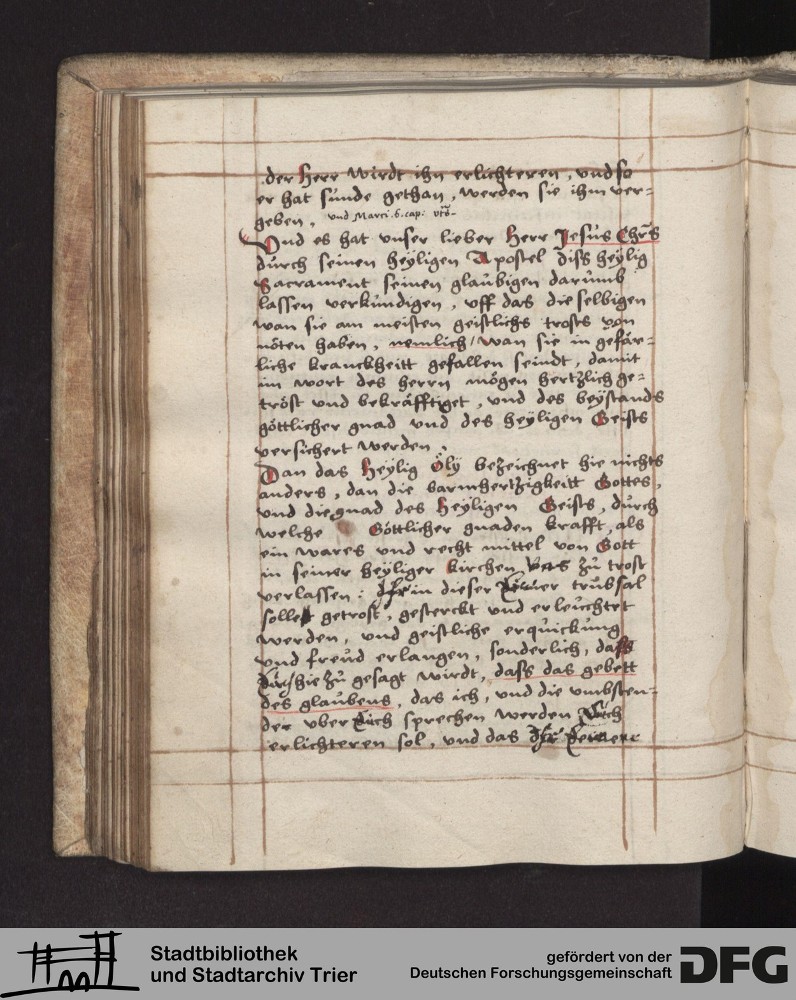 der Herr wirdt ihn erlichteren, vnd so
er hat sünde gethan, werden sie ihm ver=
geben. vnd Marci. 6. cap:
Vnd es hat vnser lieber Herr Jesus Chrs
durch seinen heyligen Apostel diss heylig
Sacrament seinen glaubigen darumb
lassen verkundigen, vff das die selbigen
wan sie am meisten geistlichs trosts von
nöten haben, nemlich/wan sie in gefär=
liche kranckheitt gefallen seindt, damit
im wort des herrn mögen hertzlich ge=
tröst vnd bekräfftiget, vnd des beystands
göttlicher gnad vnd des heyligen Geists
versichert werden.
Dan das Heylig Öly bezeichnet hie nichts
anders, dan die barmhertzigkeitt Gottes,
vnd die gnad des Heyligen Geists, durch
welche Göttlicher gnaden krafft, als
ein wares vnd recht mittel von Gott
in seiner heyliger kirchen zu trost
verlassen: Ihr in dieser trübsal
sollet getrost, gesterckt vnd erleuchtet
werden, vnd geistliche erquickung
vnd freud erlangen, sonderlich, dass
hie zu gesagt wirdt, dass das gebett
des glaubens, das ich, vnd die vmbsten=
der vber Euch sprechen werden Euch
erlichteren sol, vnd das Ihr
Stadtbibliothek
und Stadtarchiv Trier
gefördert von der
Deutschen Forschungsgemeinschaft
DFG